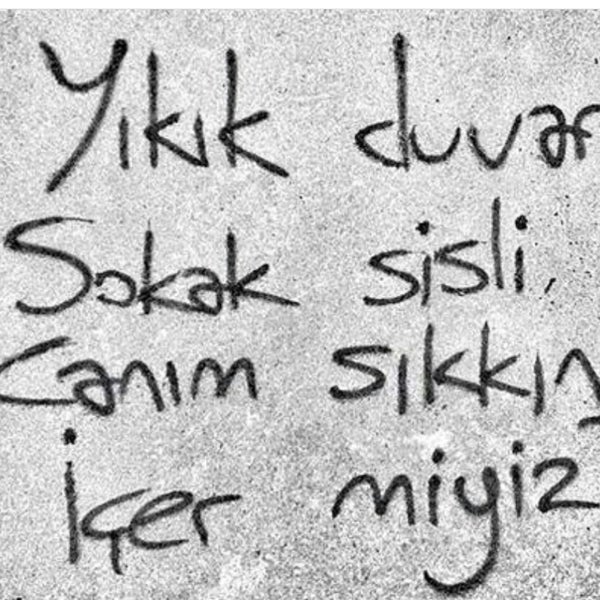 Yıkık duvar
Sokak sisli,
Canım sıkkın
İçer miyiz